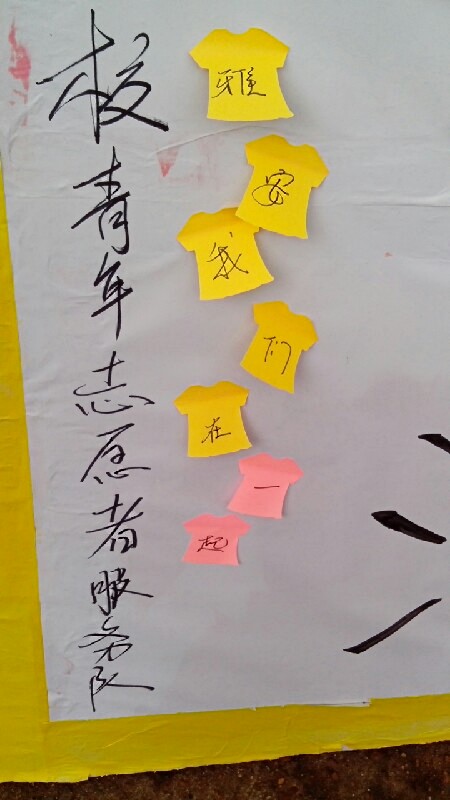 校青年志愿者服务队
雅安我们在一起